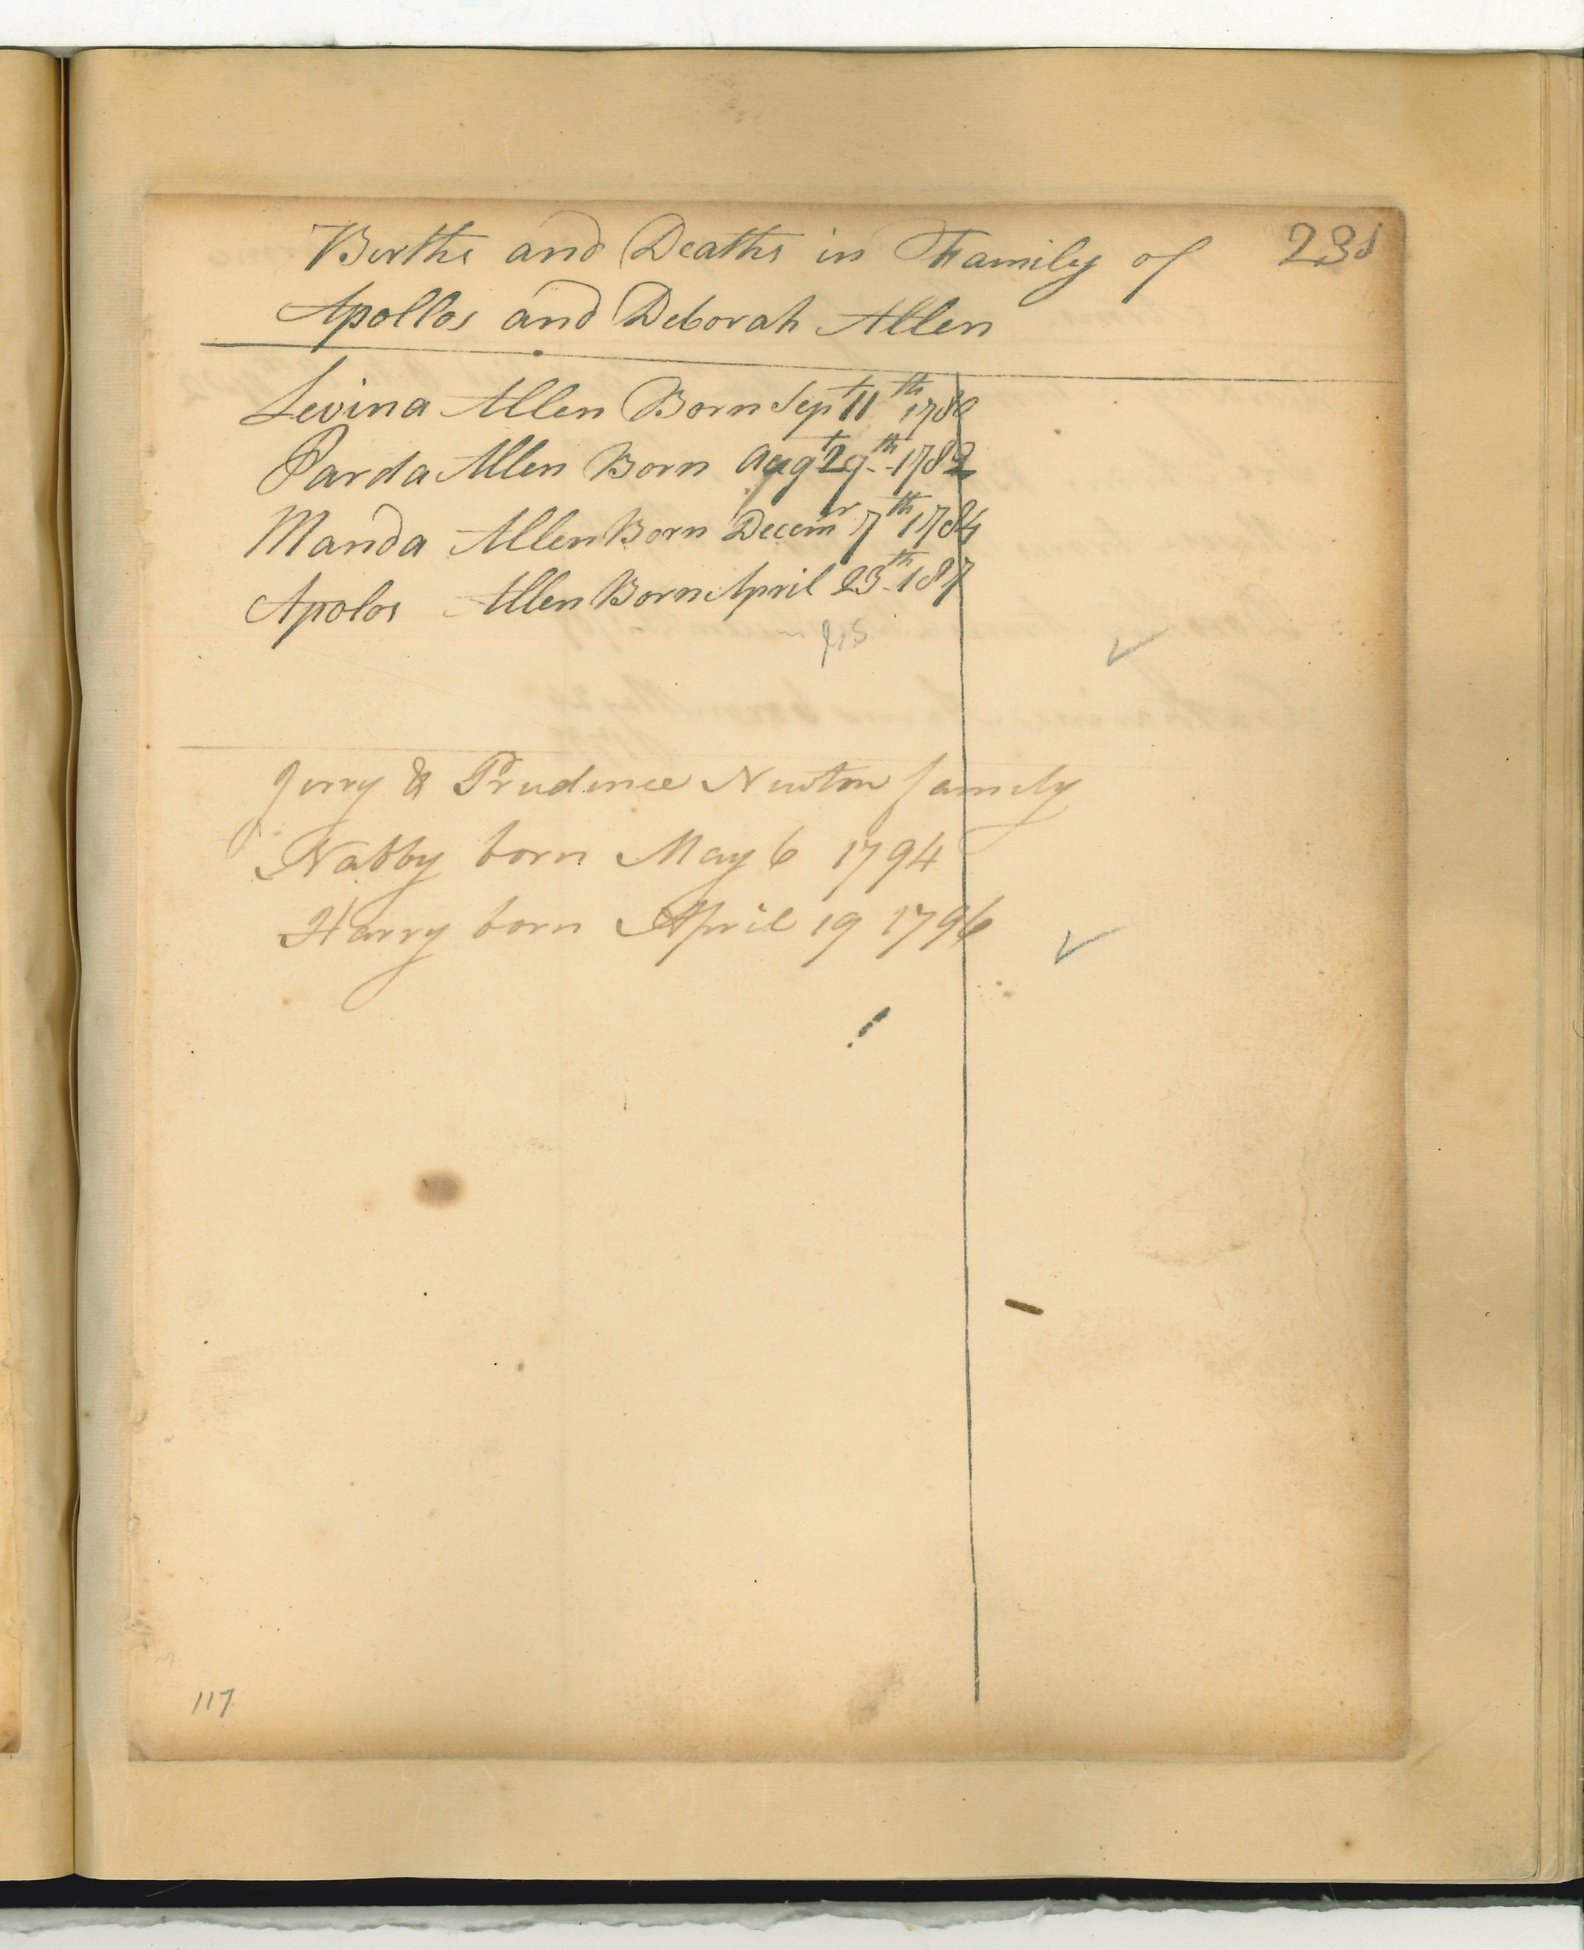 Births and Deaths in Family of 231
Apollos and Deborah Allen
Levina Allen Born Sept 11th 1780
Parda Allen Born Augt 29th 1782
Manda Allen Born Decemr 7th 1784
Apolos Allen Born April 23th 187
Jerry & Prudence Newton family
Nabby born May 6 1794
Harry born April 19 1796
117